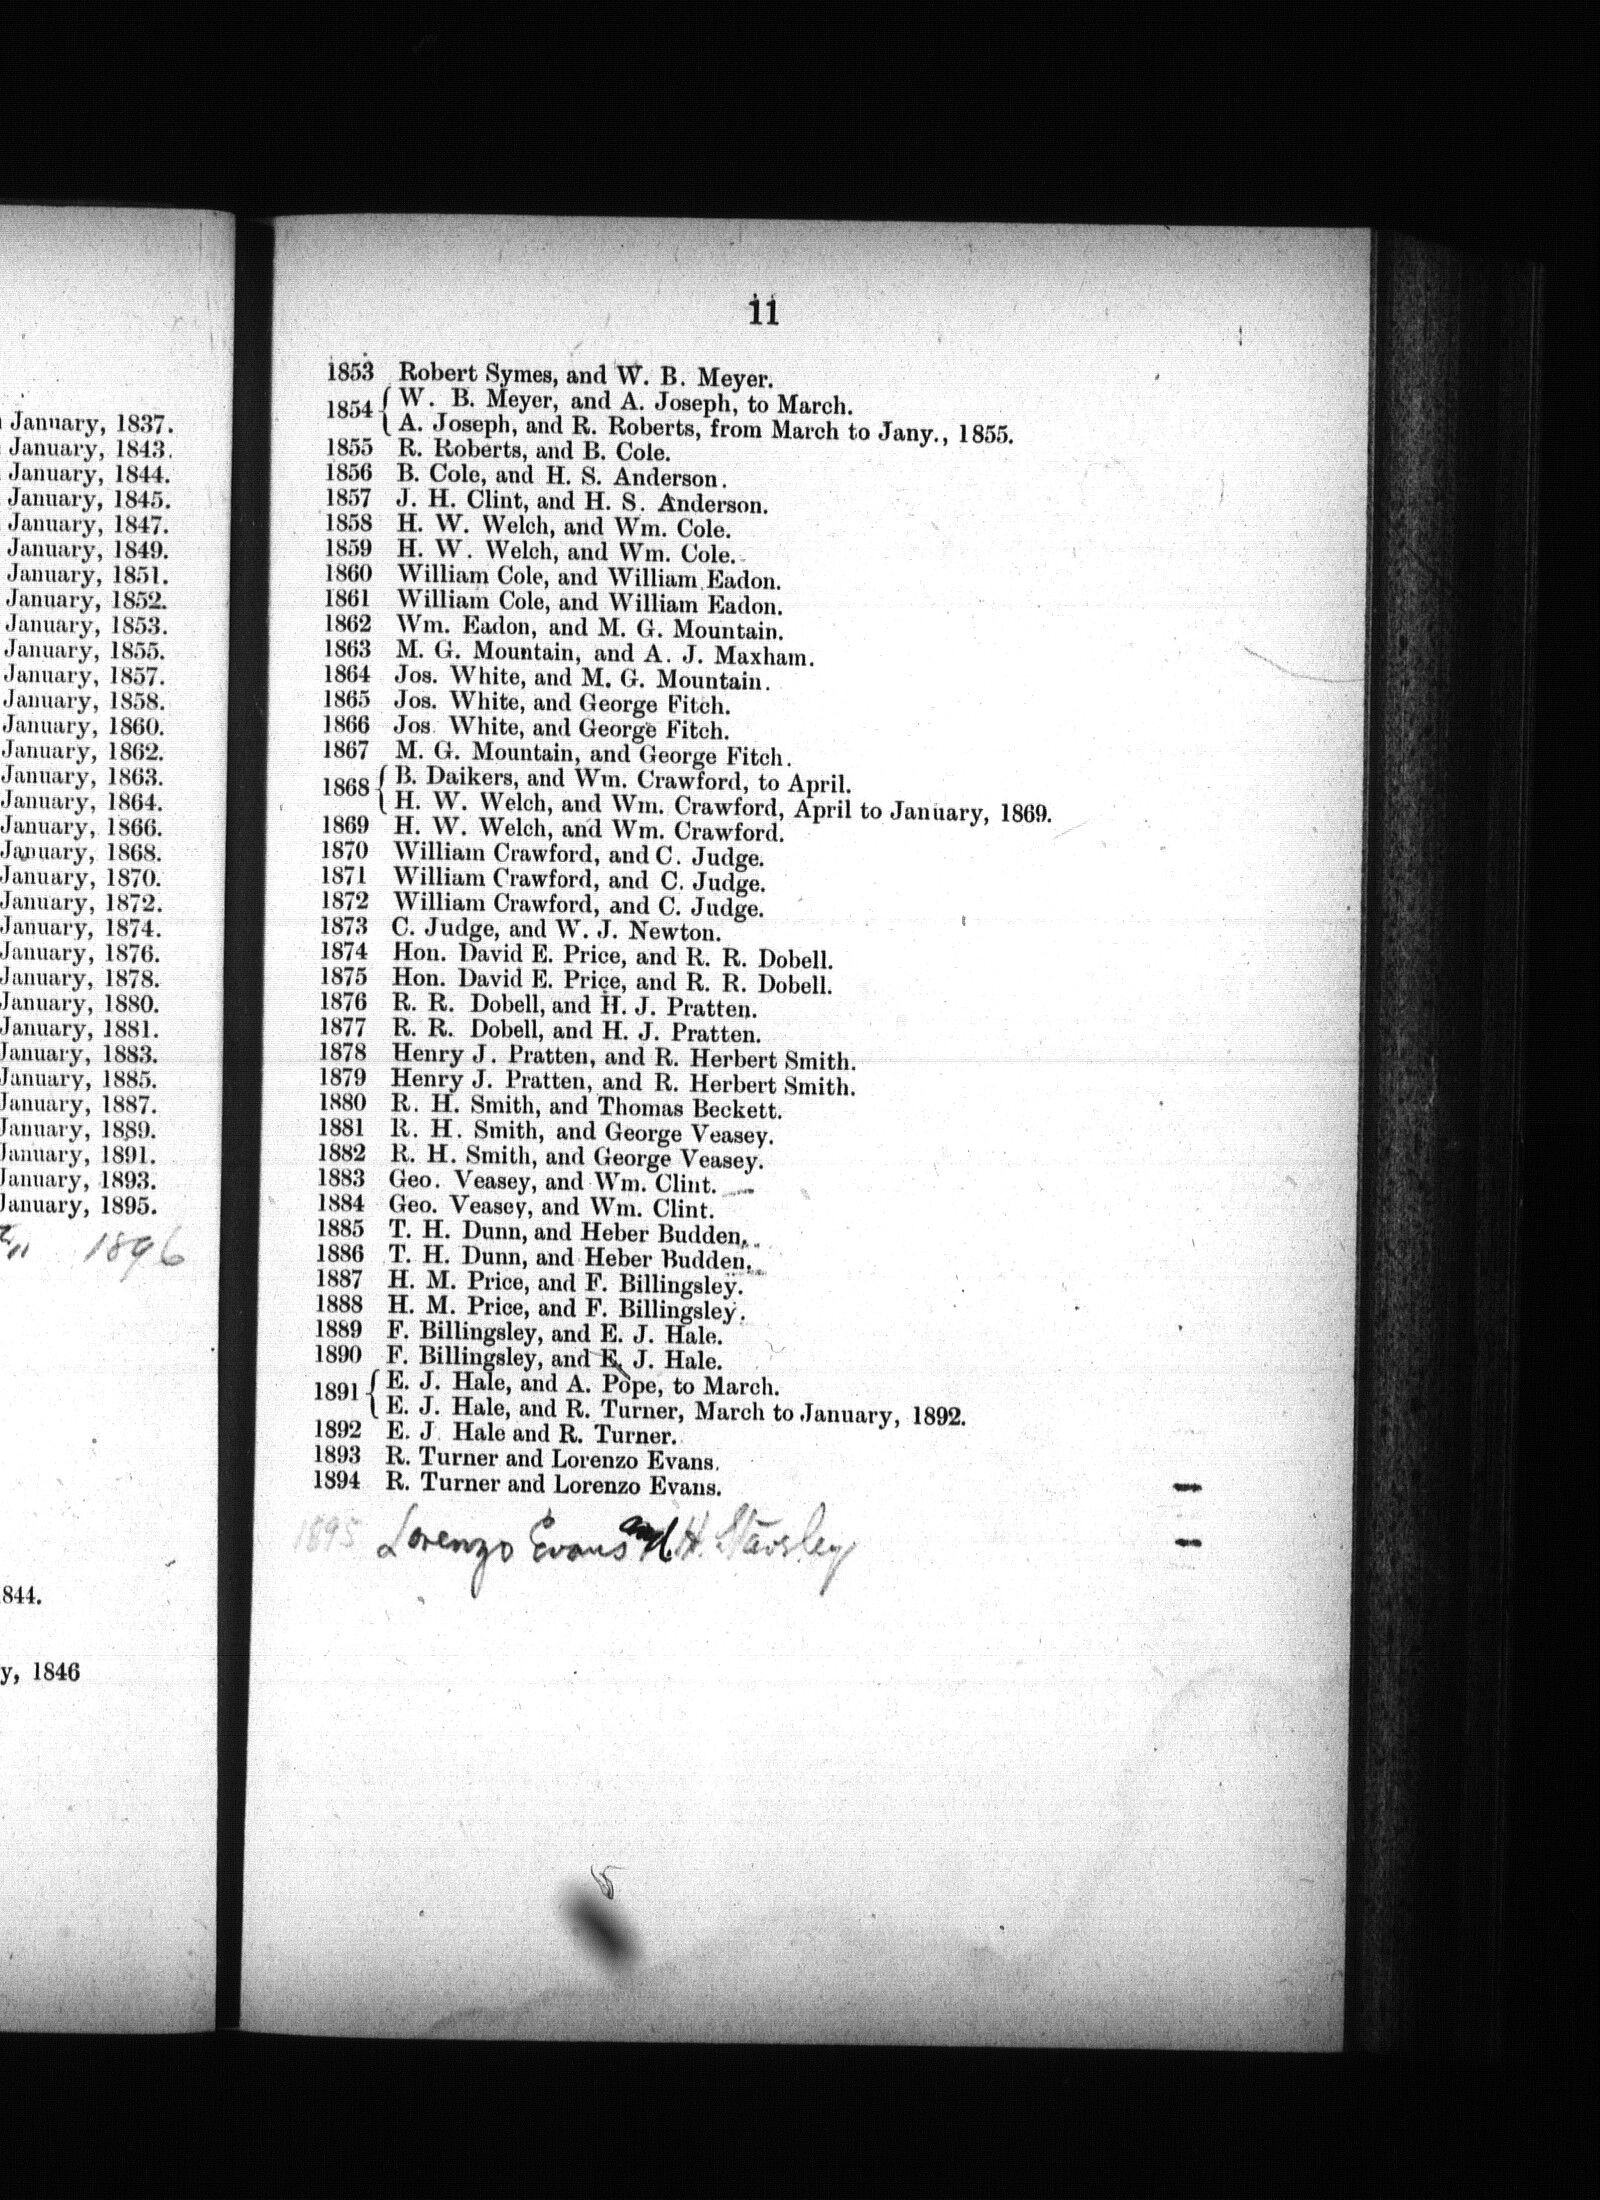 January, 1837.
January, 1843.
January, 1844.
January, 1845.
January, 1847.
January, 1849.
January, 1851.
January, 1852.
January, 1853.
January, 1855.
January, 1857.
January, 1858.
January, 1860.
January, 1862.
January, 1863.
January, 1864.
January, 1866.
January, 1868.
January, 1870.
January, 1872.
January, 1874.
January, 1876.
January, 1878.
January, 1880.
January, 1881.
January, 1883.
January, 1885.
January, 1887.
January, 1889.
January, 1891.
January, 1893.
January, 1895.
1896
844.
y, 1846
11
1853 Robert Symes, and W. B. Meyer.
1854 { W. B. Meyer, and A. Joseph, to March.
A. Joseph, and R. Roberts, from March to Jany., 1855.
1855 R. Roberts, and B. Cole.
1856 B. Cole, and H. S. Anderson.
1857 J. H. Clint, and H. S. Anderson.
1858 H. W. Welch, and Wm. Cole.
1859 H. W. Welch, and Wm. Cole.
1860 William Cole, and William Eadon.
1861 William Cole, and William Eadon.
1862 Wm. Eadon, and M. G. Mountain.
1863 M. G. Mountain, and A. J. Maxham.
1864 Jos. White, and M. G. Mountain.
1865 Jos. White, and George Fitch.
1866 Jos. White, and George Fitch.
1867 M. G. Mountain, and George Fitch.
1868 { B. Daikers, and Wm. Crawford, to April.
H. W. Welch, and Wm. Crawford, April to January, 1869.
1869 H. W. Welch, and Wm. Crawford.
1870 William Crawford, and C. Judge.
1871 William Crawford, and C. Judge.
1872 William Crawford, and C. Judge.
1873 C. Judge, and W. J. Newton.
1874 Hon. David E. Price, and R. R. Dobell.
1875 Hon. David E. Price, and R. R. Dobell.
1876 R. R. Dobell, and H. J. Pratten.
1877 R. R. Dobell, and H. J. Pratten.
1878 Henry J. Pratten, and R. Herbert Smith.
1879 Henry J. Pratten, and R. Herbert Smith.
1880 R. H. Smith, and Thomas Beckett.
1881 R. H. Smith, and George Veasey.
1882 R. H. Smith, and George Veasey.
1883 Geo. Veasey, and Wm. Clint.
1884 Geo. Veasey, and Wm. Clint.
1885 T. H. Dunn, and Heber Budden.
1886 T. H. Dunn, and Heber Budden.
1887 H. M. Price, and F. Billingsley.
1888 H. M. Price, and F. Billingsley.
1889 F. Billingsley, and E. J. Hale.
1890 F. Billingsley, and E. J. Hale.
1891 { E. J. Hale, and A. Pope, to March.
E. J. Hale, and R. Turner, March to January, 1892.
1892 E. J. Hale and R. Turner.
1893 R. Turner and Lorenzo Evans.
1894 R. Turner and Lorenzo Evans.
1895 Lorenzo Evans and H.